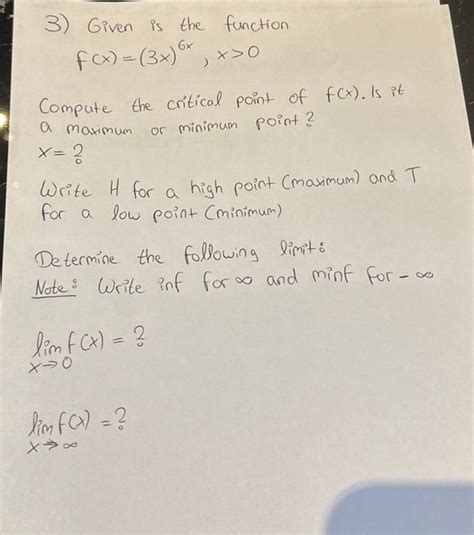 3) Given is the function
f(x) = (3x)^6x, x>0
Compute the critical point of f(x). Is it
a maximum or minimum point?
x = ?
Write H for a high point (maximum) and T
for a low point (minimum)
Determine the following limit:
Note: Write inf for ∞ and minf for -∞
lim f(x) = ?
x→0
lim f(x) = ?
x→∞